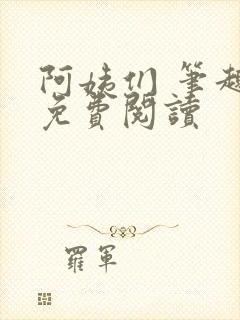 阿姨们 笔趣
免費閱讀
羅軍